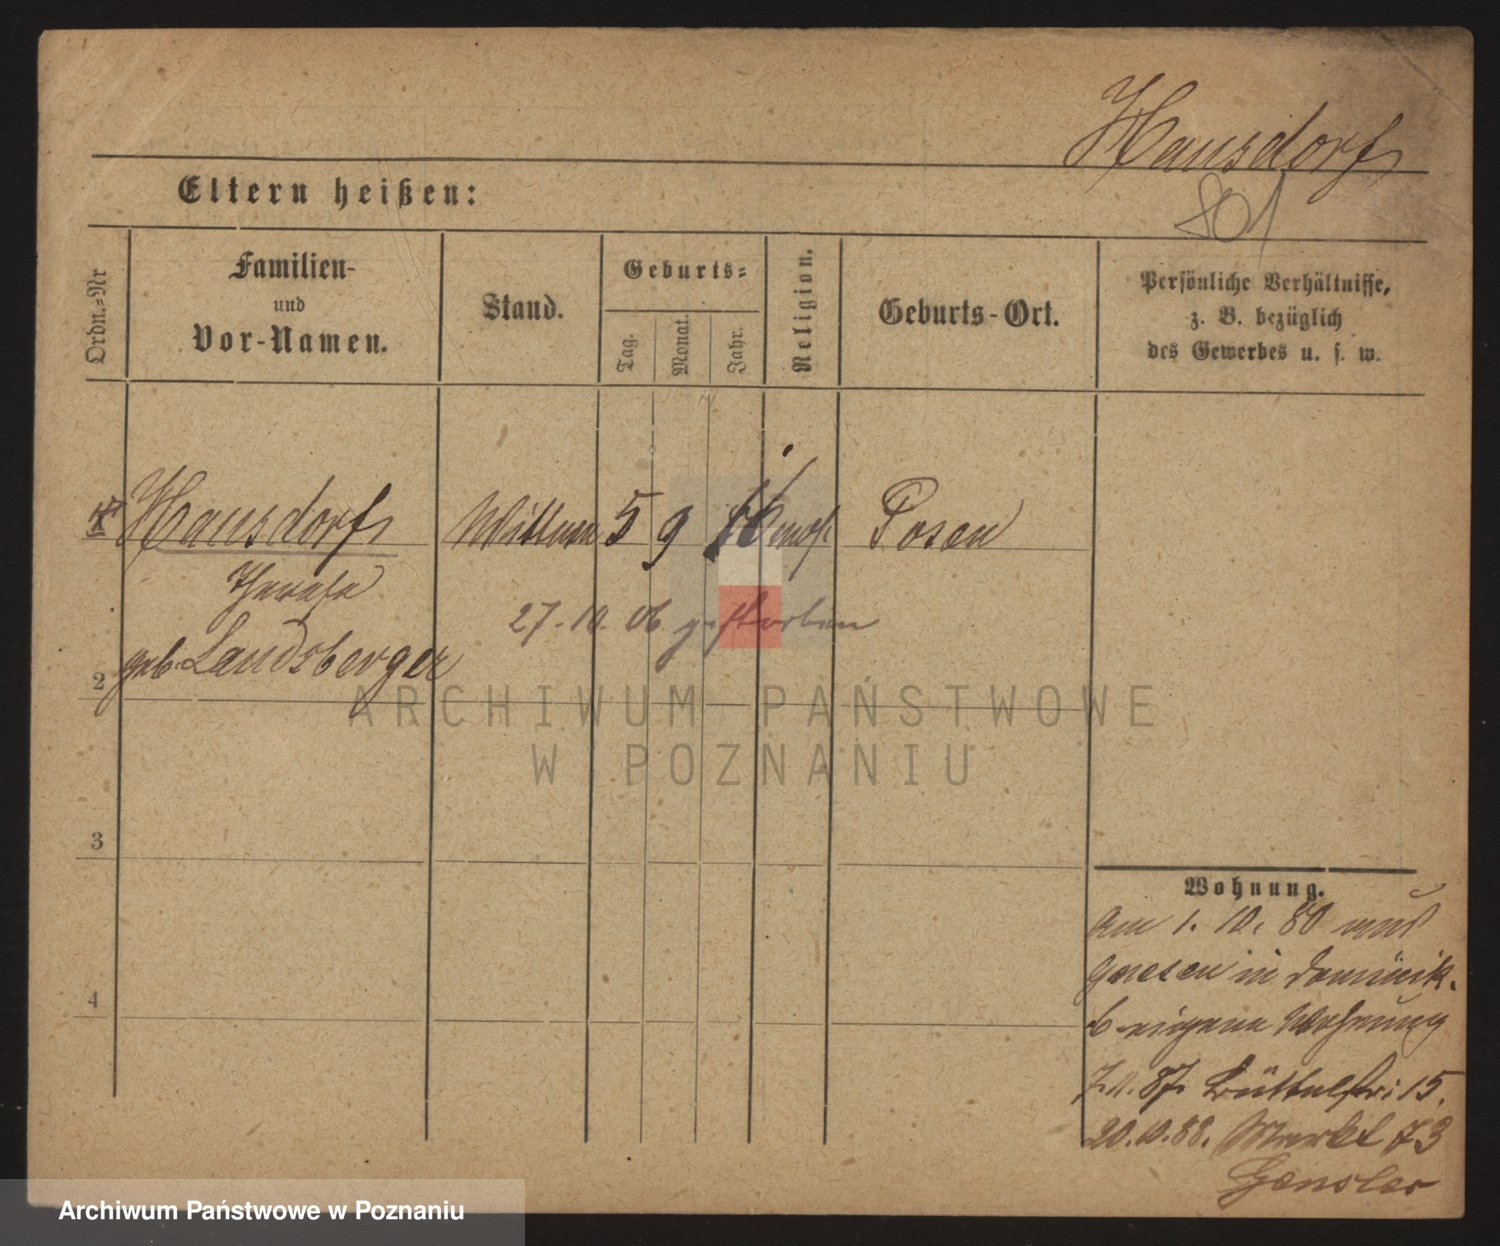 Hausdorf
801
Eltern heißen:
Ordn.-Nr
Familien-
und
Vor-Namen.
Stand.
Geburts-
Tag.
Monat.
Jahr.
Religion.
Geburts-Ort.
Persönliche Verhältnisse,
z. B. bezüglich
des Gewerbes u. s. w.
1 Hausdorf Wittwe 5 9 16 mos. Posen
Therese
27.10.06 gestorben
geb. Landsberger
2
3
4
Wohnung.
Am 1.10.80 aus
Gnesen in Dominik.
6 eigene Wohnung
7.11.87 Büttelstr: 15.
20.10.88. Markt 73
Gensler
ARCHIWUM PAŃSTWOWE
W POZNANIU
Archiwum Państwowe w Poznaniu